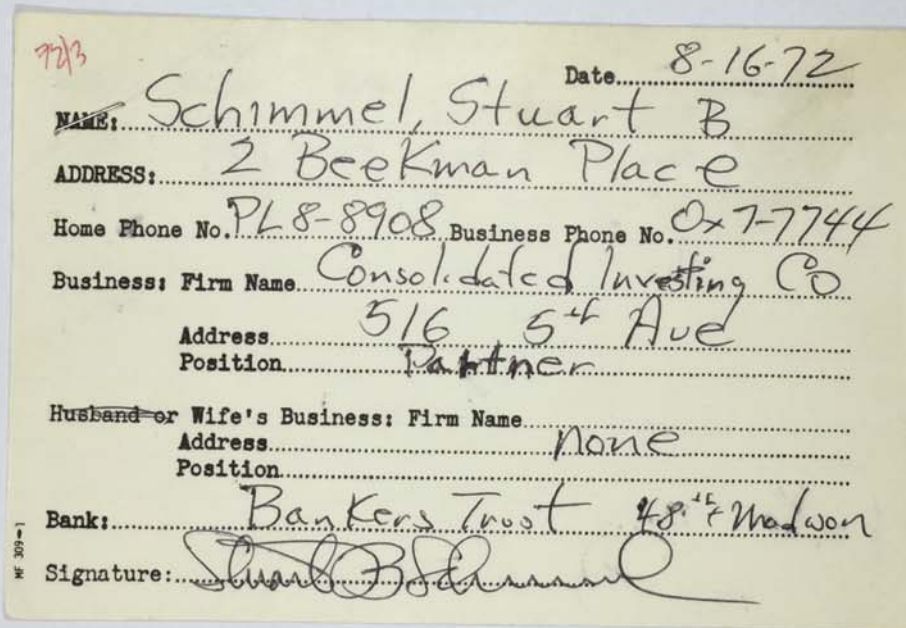 72/3
Date 8-16-72
NAME: Schimmel, Stuart B
ADDRESS: 2 Beekman Place
Home Phone No. PL 8-8908 Business Phone No. Ox 7-7744
Business: Firm Name Consolidated Investing Co
Address 516 5th Ave
Position Partner
Husband or Wife's Business: Firm Name
Address none
Position
Bank: Bankers Trust 48th & Madison
MF 309-1
Signature: Stuart B Schimmel